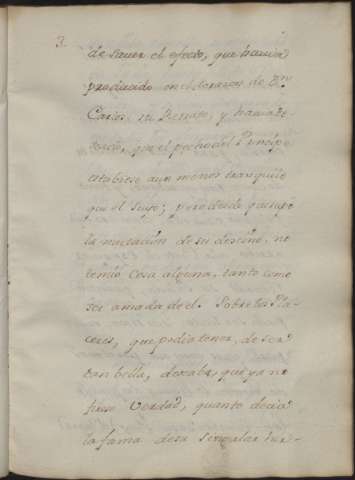 3.
de saver el efecto, que havia
producido en el corazon de Dn.
Carlos su Retrato; y havia de
que el pecho del Principe
estubiese aun menos tranquilo
que el suyo; pero desde que supo
la mutacion de su destino, no
temió cosa alguna, tanto como
ser amada de el. Sobre los Pla-
ceres, que podia tener, de ser
tan bella, deseaba, que ya no
fuese Verdad, quanto decia
la fama de su singular her-